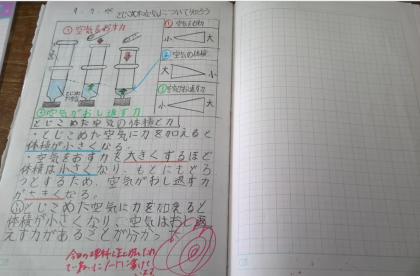 とじこめた空気についてしらべよう
①空気をおす力
小 大
②空気の体積
大 小
③空気がおし返す力
小 大
①空気をおす力
③空気がおし返す力
とじこめた空気の体積と力
・とじこめた空気に力を加えると
体積が小さくなる。
・空気をおす力を大きくするほど
体積は小さくなり、もとにもどろ
うとするため、空気がおし返す力
が大きくなる。
とじこめた空気に力を加えると
体積が小さくなり、空気はおし返
す力があることが分かった。
今日の
ノートに書けて